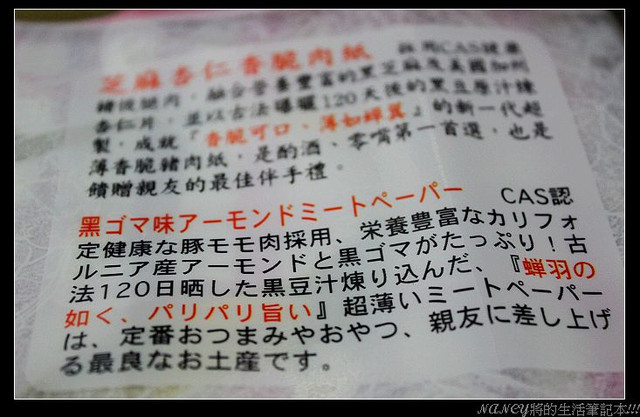 芝麻杏仁香脆肉紙　採用CAS健康
豬後腿肉，融合營養豐富的黑芝麻及美國加州
杏仁片，並以古法曝曬120天後的黑豆原汁煉
製，成就『香脆可口、薄如蟬翼』的新一代超
薄香脆豬肉紙，是酌酒、零嘴第一首選，也是
饋贈親友的最佳伴手禮。
黑ゴマ味アーモンドミートペーパー　CAS認
定健康な豚モモ肉採用、栄養豊富なカリフォ
ルニア産アーモンドと黒ゴマがたっぷり！古
法120日晒した黒豆汁煉り込んだ、『蝉羽の
如く、パリパリ旨い』超薄いミートペーパー
は、定番おつまみやおやつ、親友に差し上げ
る最良なお土産です。
NANCY將的生活筆記本!!!